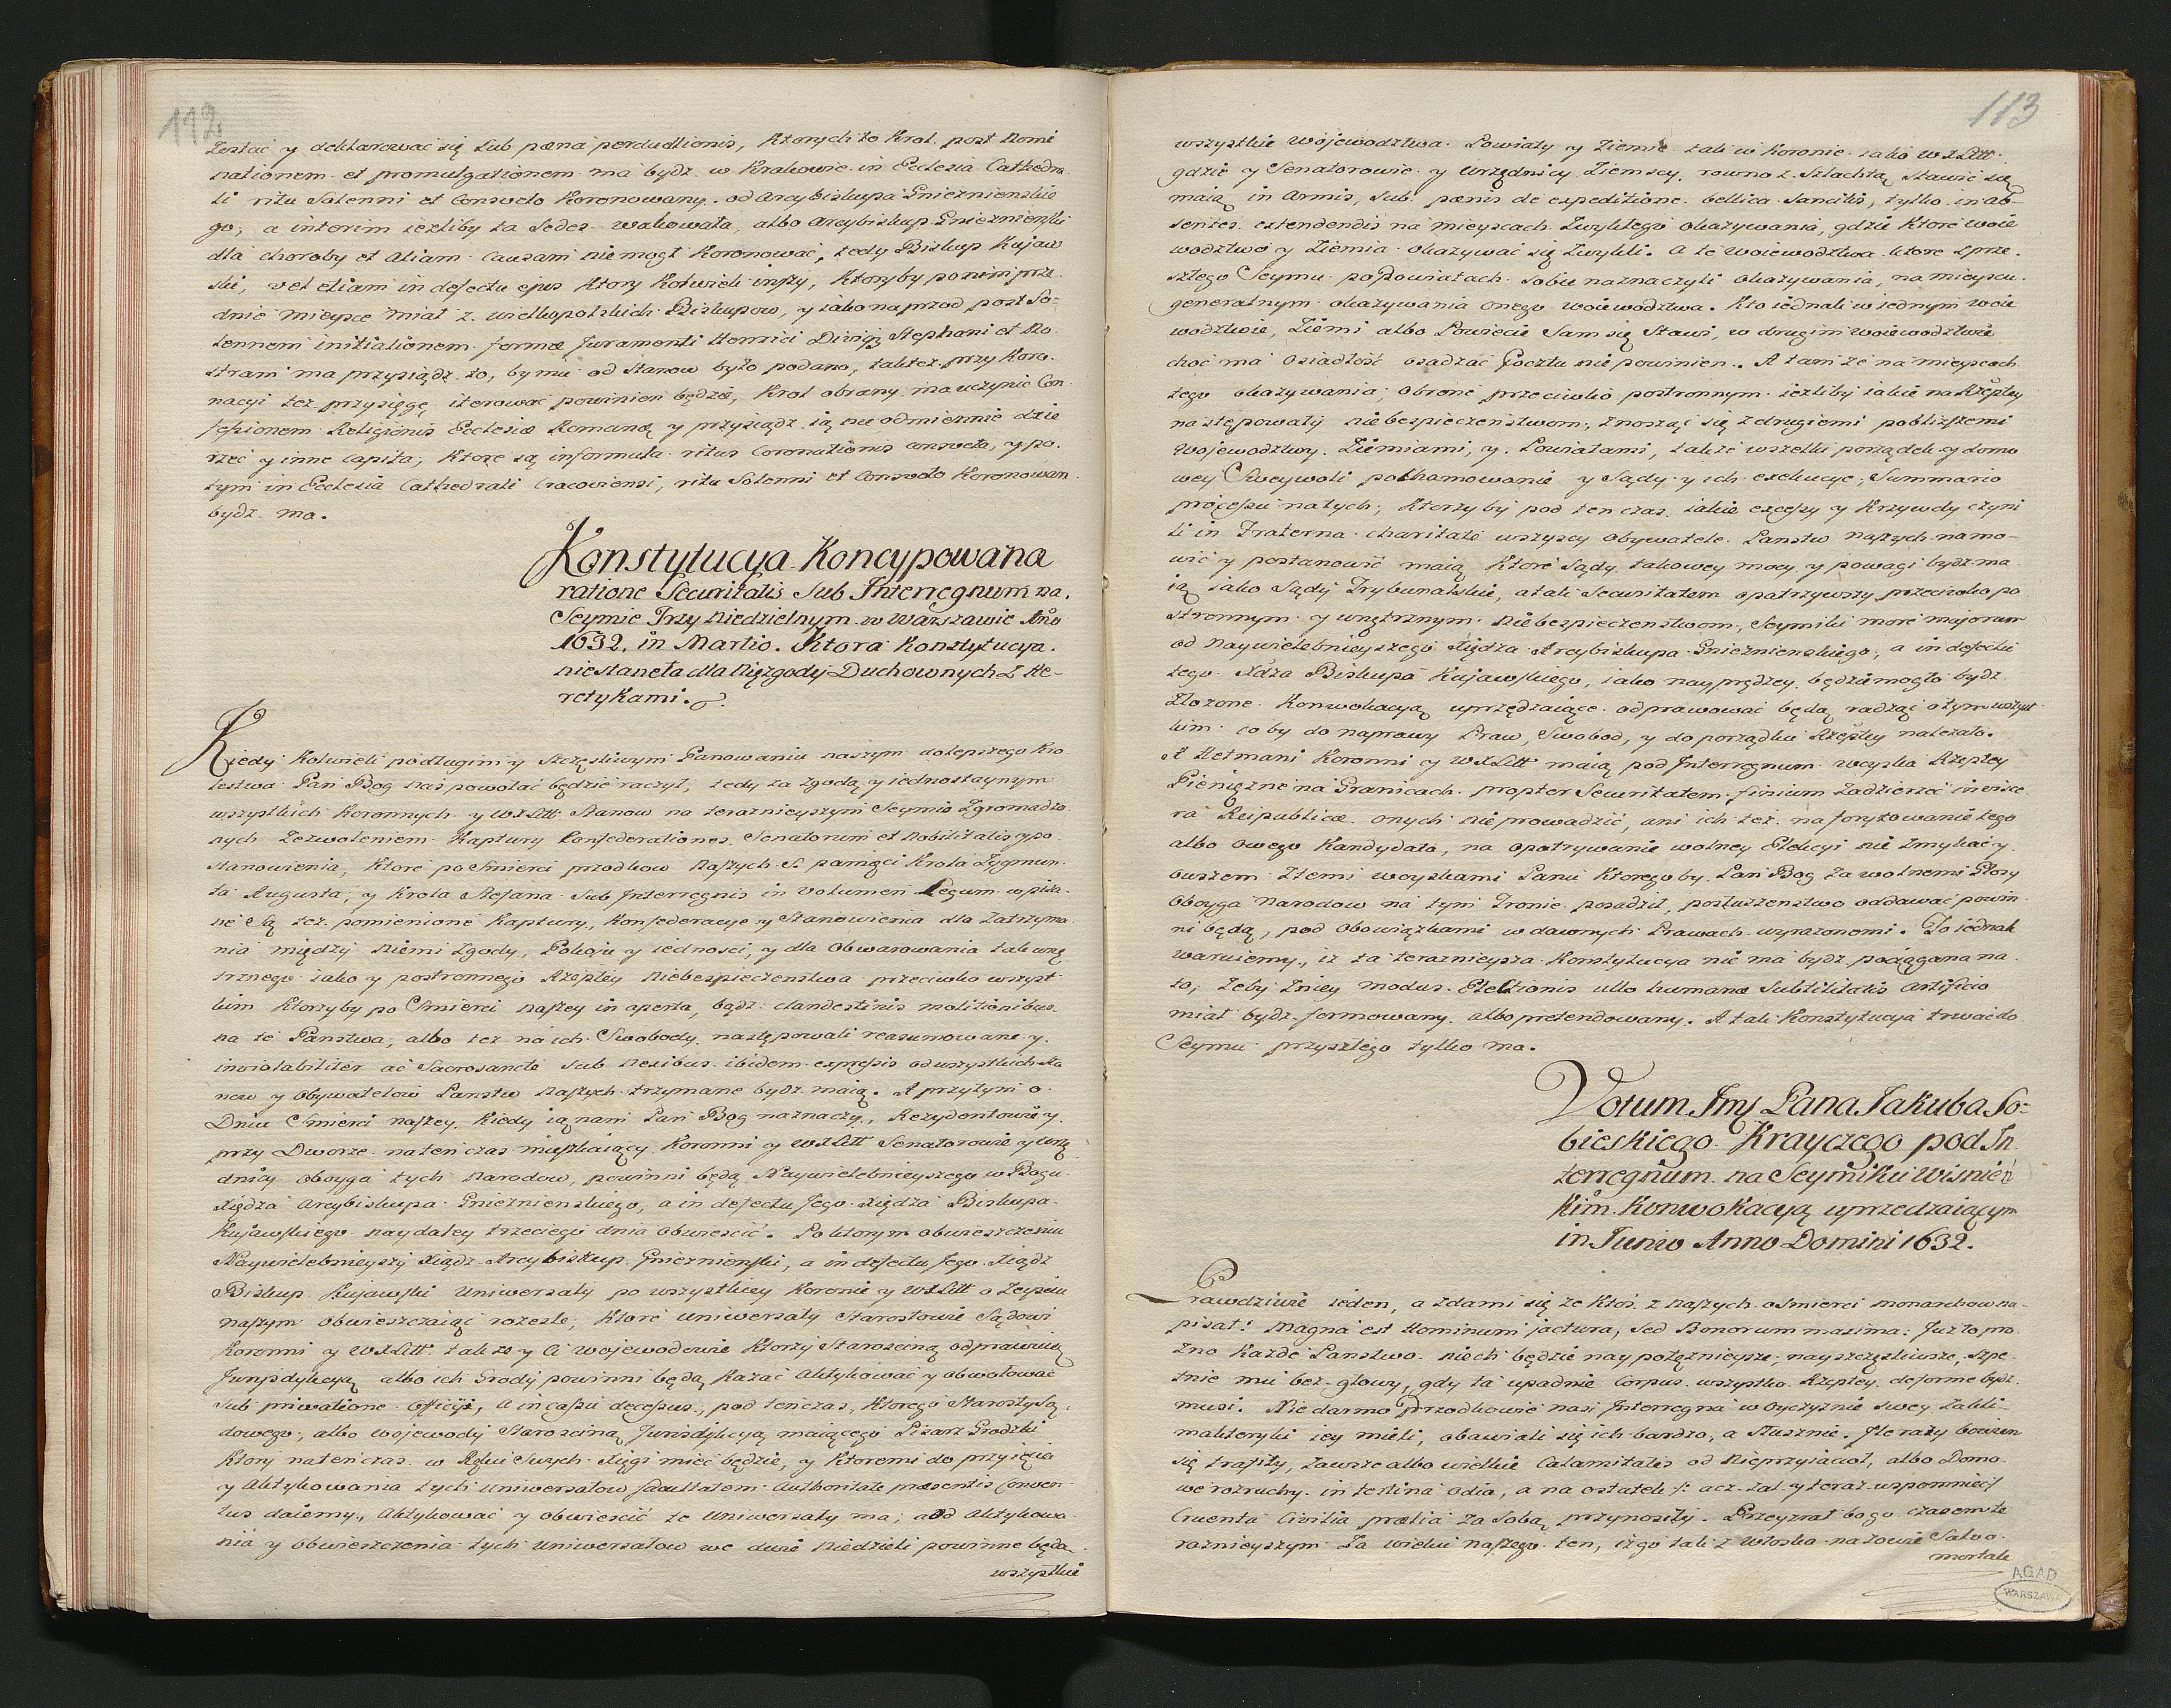 112
zostać y deklarować się sub pæna perduellionis, Ktorych to Krol. post Nomi
nationem et promulgationem ma bydz w Krakowie in Ecclesia Cathedra
li ritu Solenni et Consveto Koronowany. od Arcybiskupa Gnieznienskie
go; a interim iezliby ta Sedes wakowała, albo Arcybiskup Gnieznieński
dla choroby et aliam causam nie mogł Koronować, tedy Biskup Kujaw
ski, vel etiam in defectu ejus Ktory Kolwiek inszy, Ktoryby ponim prze
dnie mieysce miał z wielkopolskich Biskupow, y iako na przod post So=
lennem initiationem formæ Juramenti Henrici Divig Stephani et No
stram ma przysiądz to, by mu od Stanow było podano, taktez przy Koro.
nacyi tez przysięgę iterować powinien będzie, Krol obrany ma uczynic Con
fessionem Religionis Ecclesiæ Romanæ y przysiądz ią nie odmiennie dzie
rzeć y inne capita, Ktore są in formula ritus Coronationis consveta, y po.
tym in Ecclesia Cathedrali Cracoviensi, ritu Solenni et Consveto Koronowan
bydz ma.
Konstytucya Koncypowana
ratione Securitatis Sub Interregnum na.
Seymie Trzy Niedzielnym w Warszawie Ano
1632. in Martio. Ktora Konstytucya.
niestaneła dla Niezgody Duchownych z He-
retykami.
Kiedy Kolwiek podługim y Szczęsliwym Panowaniu naszym dolepszego Kro
lestwa Pan Bog nas powołać będzie raczył, tedy za zgodą y iednostaynym
wszystkich Koronnych y WXLitt Stanow na teraznieyszym Seymie Zgromadzo
nych Zezwoleniem Kaptury Confederationes Senatorum et Nobilitatis y po
stanowienia, Ktore po Smierci przodkow Naszych S. pamięci Krola Zygmun
ta Augusta, y Krola Stefana Sub Interregnis in Volumen Legum wpisa
ne Są tez pomienione Kaptury, Konfederacye y Stanowienia dla Zatrzyma
nia między Niemi Zgody, Pokoju y iednosci, y dla Obwarowania tak wnę
trznego iako y postronnego Rzeplley Niebespieczenstwa przeciwko wszyst
kim Ktorzyby po Smierci naszey in aperta, bądz clandestinis molitionibus
na te Panstwa, albo tez na ich Swobody następowali reassumowane y
inviolabiliter ac Sacrosancte sub nexibus ibidem expressis od wszystkich Sta
now y Obywatelow Panstw Naszych trzymane bydz maią. A przytym o
Dniu Smierci naszey, Kiedy ią nam Pan Bog naznaczy, Rezydentowie y
przy Dworze naten czas mieszkaiący Koronni y WXLitt Senatorowie y Urzę
dnicy oboyga tych Narodow, powinni będą Naywielebnieyszego w Bogu
Xiędza Arcybiskupa Gnieznienskiego, a in defectu Jego Xiędza Biskupa
Kujawskiego naydaley trzeciego dnia Obwiescić. Po ktorym obwieszczeniu
Naywielebnieyszy Xiądz Arcybiskup Gnieznieński, a in defectu Jego Xiądz
Biskup Kujawski Uniwersały po wszystkiey Koronie y WXLitt o Zeysciu
naszym obwieszczaiąc rozesle; Ktore Uniwersały Starostowie Sądowi
Koronni y WXLitt. takze y Ci Wojewodowie Ktorzy Staroscina odprawuią
Jurysdykcyą albo ich Grody powinni będą, Kazać Aktykować y obwołować
sub privatione Officij, a in casu decessus, pod tenczas, Ktorego Starosty Są
dowego, albo Wojewody Staroscina Jurisdykcyą maiącego Pisarz Grodzki
Ktory natenczas w Ręku Swych Xięgi mieć będzie, y Ktoremi do przyięcia
y Aktykowania tych Uniwersałow facultatem Authoritate præsentis Conven
tus daiemy, Aktykować y obwiescić te Uniwersały ma; a od Aktykowa
nia y Obwieszczenia tych Uniwersałow we dwie Niedzieli powinne będą
wszystkie
113
wszystkie Wojewodztwa. Powiaty y Ziemie tak w Koronie iako WXLitt.
gdzie y Senatorowie y Urzędnicy Ziemscy, rowno z Szlachtą Stawić się
maią in Armis, sub pænis de expeditione bellica Sancitis, tylko in ab-
sentes extendendis na mieyscach Zwykłego Okazywania, gdzie Ktore woie
wodztwo y Ziemia Okazywać się Zwykli. A te Woiewodztwa ktore z prze.
szłego Seymu po Powiatach sobie naznaczyli Okazywania, na mieyscu
generalnym okazywania onego woiewodztwa. Kto iednak w iednym Woie
wodztwie, Ziemi albo Powiecie Sam się Stawi, w drugim Woiewodztwie
choc ma Osiadłość osadzać Pocztu nie powinien. A tam ze na mieyscach
tego okazywania, Obronę przeciwko postronnym iezliby iakie na Rzeplley
następowały niebespieczenstwom, znosząc się z drugiemi poblizszemi
Wojewodztwy. Ziemiami, y Powiatami, takze wszelki porządek y domo
wey Swywoli pohamowanie y Sądy y ich exekucye, Summario
processu na tych, Ktorzyby pod ten czas iakie excessy y Krzywdy czyni
li in Fraterna charitate wszyscy Obywatele Panstw naszych namo-
wić y postanowić maią Ktore Sądy takowey mocy y powagi bydz ma
ią iako Sądy Trybunalskie, a tak Securitatem opatrzywszy przeciwko po
stronnym y wnętrznym Niebespieczenstwom, Seymiki more majorum
od Naywielebnieyszego Xiędza Arcybiskupa Gnieznienskiego, a in defectu
tego Xdza Biskupa Kujawskiego, iako nayprędzey będzie mogło bydz
złozone Konwokacyą uprzędzaiące odprawować będą radząc o tym wszyst
kim co by do naprawy Praw, Swobod, y do porządku Rzeplley należało.
A Hetmani Koronni y WXLitt maią pod Interregnum woyska Rzeplley
Pieniężne na Granicach propter Securitatem finium Zadzierzeć in visce
ra Reipublicæ onych nie prowadzić, ani ich tez na forytowanie tego
albo Owego Kandydata, na opatrywanie wolney Elekcyi nie Zmykać y
owszem z temi woyskami Panu Ktorego by Pan Bog za wolnemi Głosy
Oboyga Narodow na tym Tronie posadził, posłuszenstwo oddawać powin
ni będą, pod Obowiązkami w dawnych Prawach wyrazonemi. To iednak
waruiemy, iz ta teraznieysza Konstytucya nie ma bydz pociągana na
to, zeby zniey modus Elektionis ullo humanæ Subtilitatis artificio
miał bydz formowany albo pretendowany. A tak Konstytucya trwać do
Seymu przyszłego tylko ma.
Votum Jmſ Pana Jakuba So=
bieskiego Krayczego pod In
terregnum na Seymiku Wisnień
Kim Konwokacyą uprzedzaiącym
in Junio Anno Domini 1632.
Prawdziwie ieden, a zdami się ze Ktoś z naszych o Smierci monarchow na
pisał: Magna est Hominum jactura, sed Bonorum maxima: Juz to pro
zno Każde Panstwo niech będzie naypotęznieysze, nayszczęsliwsze, szpe
tnie mu bez głowy, gdy ta upadnie Corpus wszystko Rzeplley deforme bydz
musi. Nie darmo Przodkowie nasi Interregna w Oyczyznie swey zakli-
makteryki iey mieli, obawiali się ich bardzo, a Słusznie. Ile razy bowiem
się trafiły, zawsze albo wielkie Calamitates od Nieprzyiacioł, albo Domo
we rozruchy intestina odia, a na ostatek /: acz zal y teraz wspomnieć/
Cruenta Civilia prælia za Sobą przynosiły. Przeyzrał bogo czasem te
raznieyszym Za wieku naszego ten, izgo tak z Włoska nazowie Salvo
mortale
AGAD
WARSZAWA